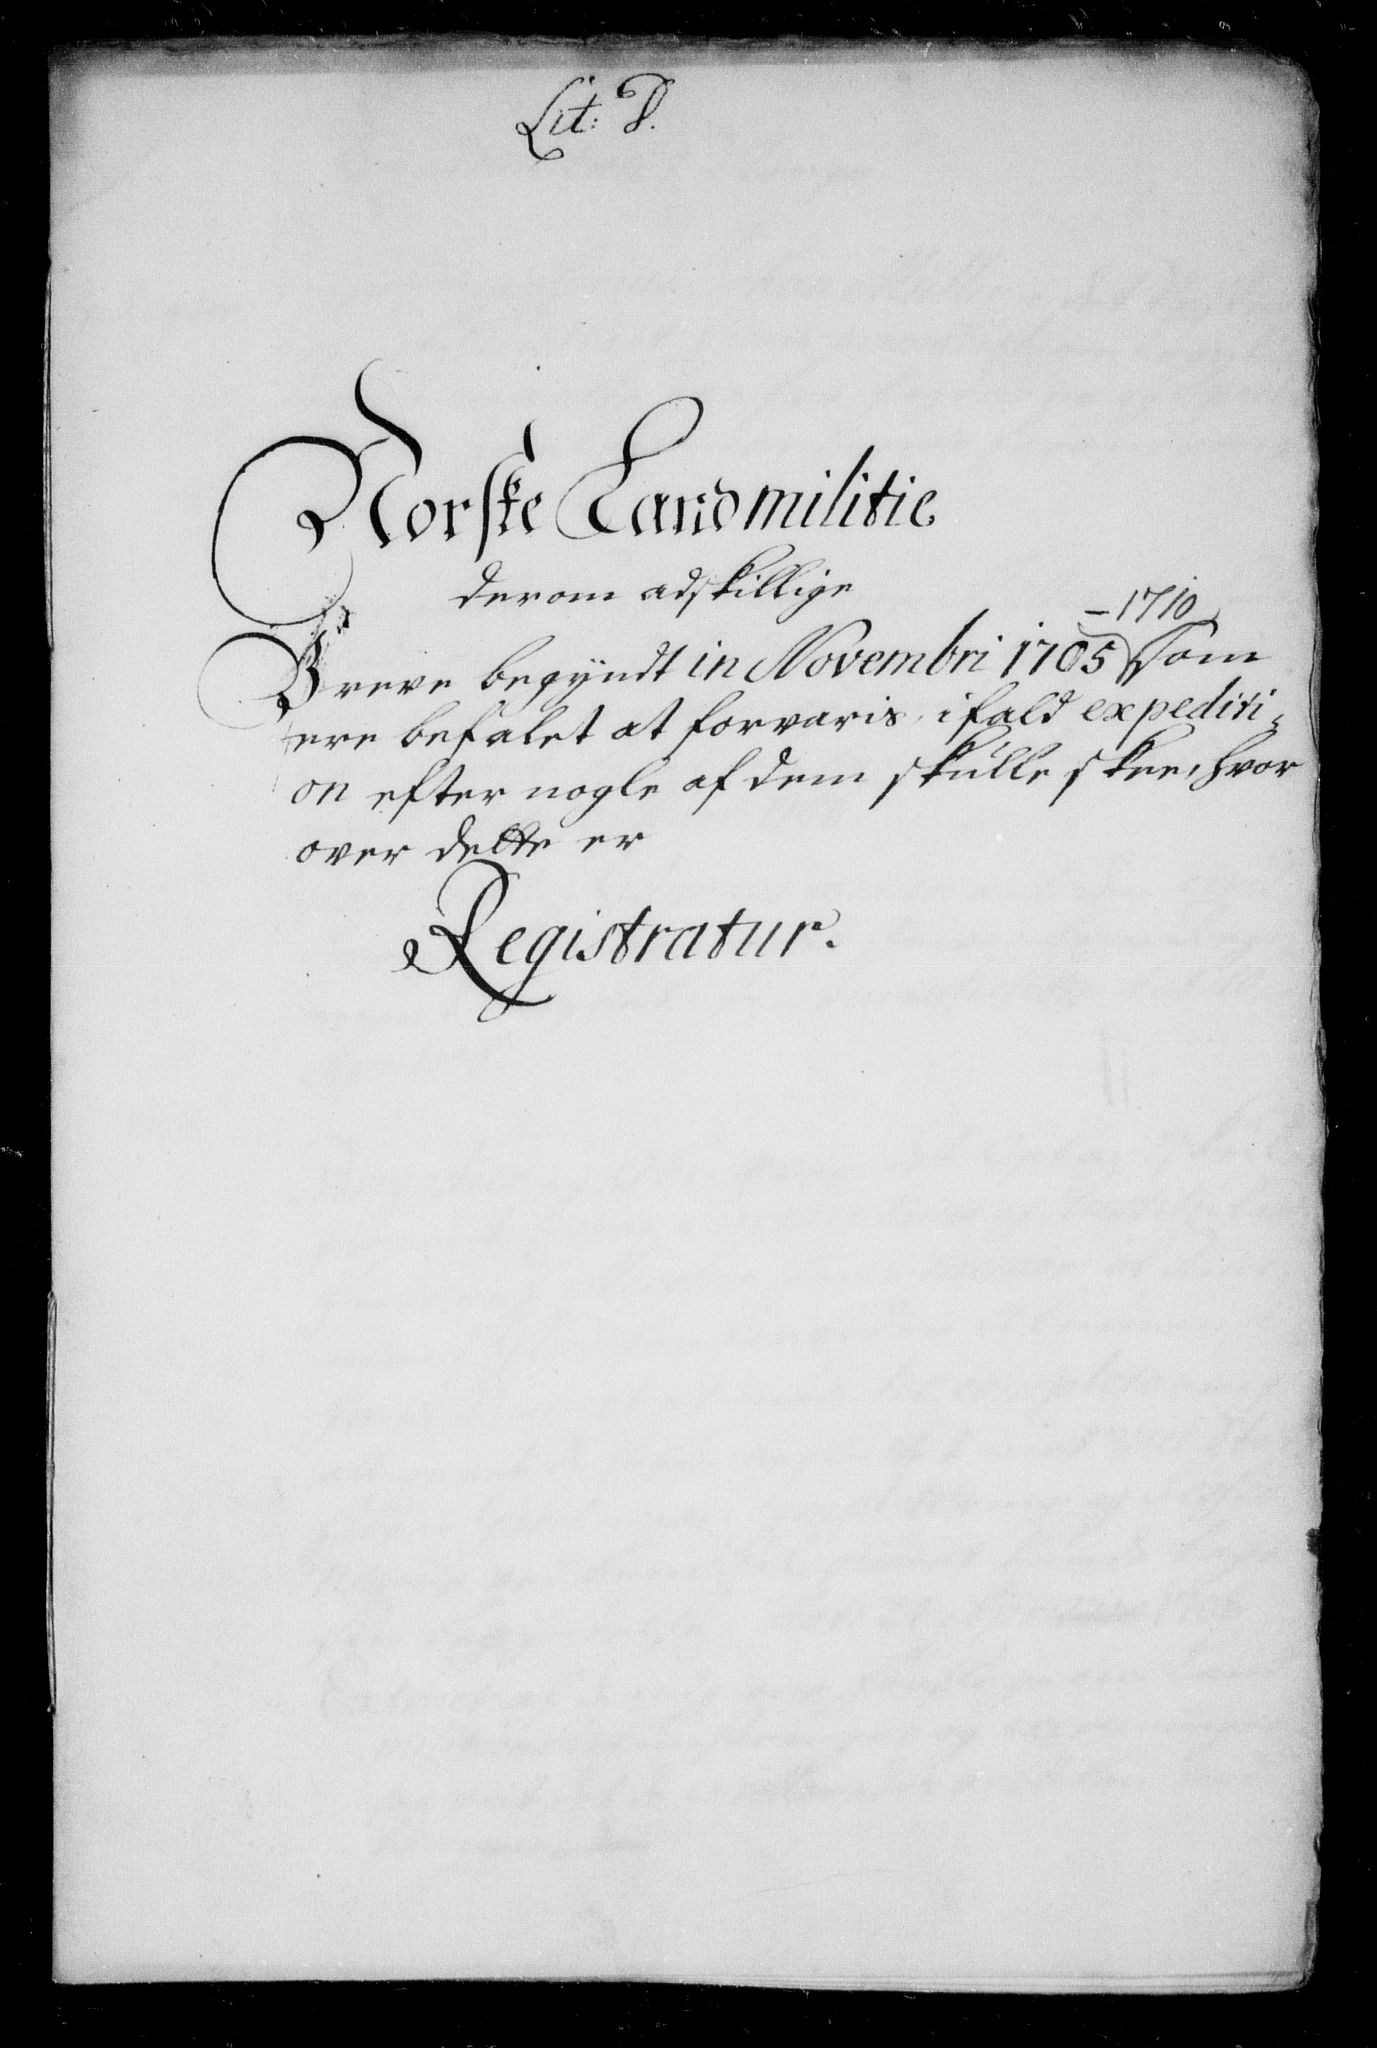 Lit: D.
Norske Landmilitie
derom adskillige
– 1710
Breve begyndt in Novembri 1705 som
ere befalet at forvaris, ifald expediti-
on efter nogle af dem skulle skee, hvor
over dette er
Registratur.